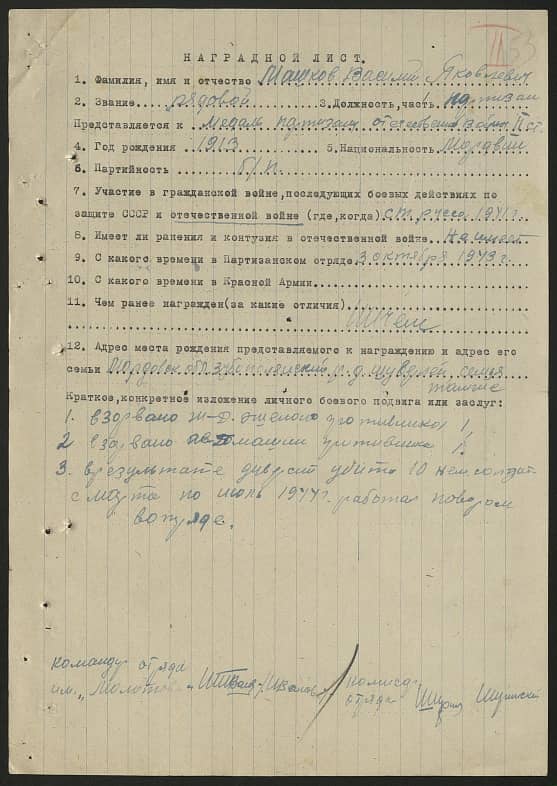 II 33
НАГРАДНОЙ ЛИСТ.
1. Фамилия, имя и отчество Машков Василий Яковлевич
2. Звание рядовой 3. Должность, часть партизан
Представляется к медаль партизан отечествен войны II ст.
4. Год рождения 1913 5. Национальность Мордвин
6. Партийность б/п.
7. Участие в гражданской войне, последующих боевых действиях по
защите СССР и отечественной войне (где, когда) с 1941 г.
8. Имеет ли ранения и контузия в отечественной войне. Не имеет
9. С какого времени в Партизанском отряде 3 октября 1943 г.
10. С какого времени в Красной Армии
11. Чем ранее награжден (за какие отличия)
12. Адрес места рождения представляемого к награждению и адрес его
семьи Мордовск обл Зубополянский р. д. семья
тамже
Краткое, конкретное изложение личного боевого подвига или заслуг:
1. взорвано ж-д. эшелона противника 1,
2 взорвано автомашин противника 1.
3. в результате диверсий убито 10 нем. солдат.
с марта по июль 1944 г. работал поваром
в отряде.
командир отряда
им. „Молотова" Иванов
комиссар
отряда